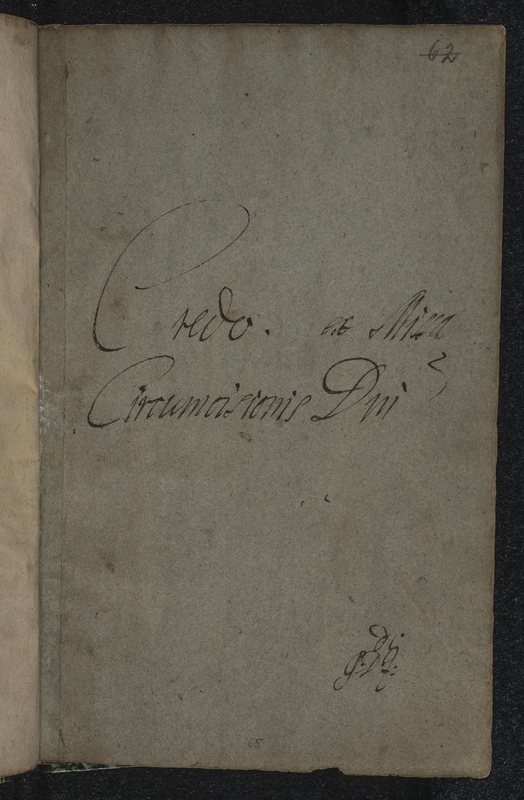 62
Credo. ex Missa
Circumcisionis Dni
65